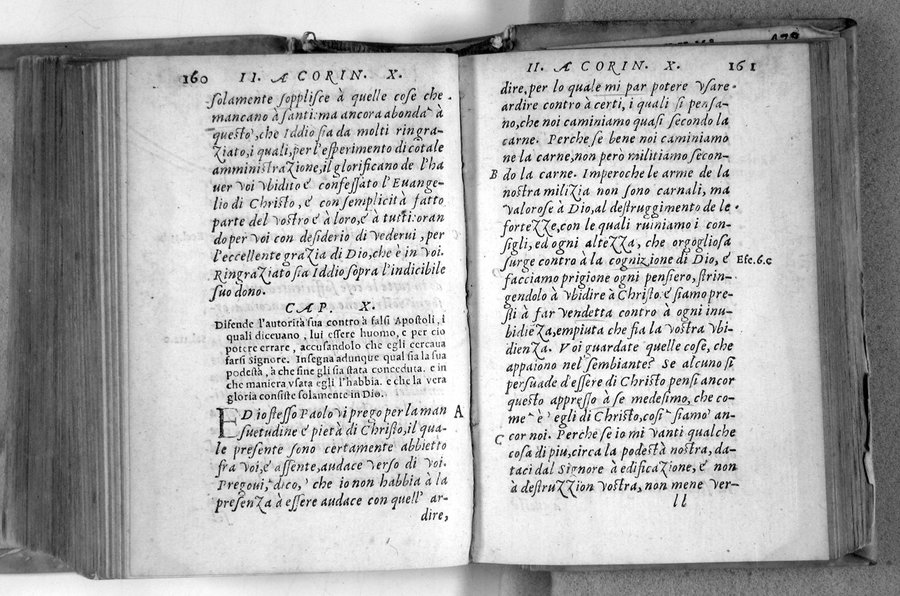 160 II. A CORIN. X.
solamente sopplisce à quelle cose che
mancano à santi: ma ancora abonda à
questo, che Iddio sia da molti ringra-
ziato, i quali, per l'esperimento di cotale
amministrazione, il glorificano de l'ha
uer voi vbidito e confessato l'Euange-
lio di Christo, e con semplicità fatto
parte del vostro e à loro, e à tutti: oran
do per voi con desiderio di vederui, per
l'eccellente grazia di Dio, che è in voi.
Ringraziato sia Iddio sopra l'indicibile
suo dono.
CAP. X.
Difende l'autorità sua contrò à falsi Apostoli, i
quali diceuano, lui essere huomo, e per cio
potere errare, accusandolo che egli cercaua
farsi signore. Insegna adunque qual sia la sua
podestà, à che fine gli sia stata conceduta. e in
che maniera vsata egli l'habbia. e che la vera
gloria consiste solamente in Dio.
ED io stesso Paolo vi prego per la man A
suetudine e pietà di Christo, il qua-
le presente sono certamente abbietto
fra voi, e assente, audace verso di voi.
Pregoui, dico, che io non habbia à la
presenza à essere audace con quell' ar-
dire,
II. A CORIN. X. 161
dire, per lo quale mi par potere vsare
ardire contrò à certi, i quali si pensa-
no, che noi caminiamo quasi secondo la
carne. Perche se bene noi caminiamo
ne la carne, non però militiamo secon-
B do la carne. Imperoche le arme de la
nostra milizia non sono carnali, ma
valorose à Dio, al destruggimento de le
fortezze, con le quali ruiniamo i con-
sigli, ed ogni altezza, che orgogliosa
surge contrò à la cognizione di Dio, e Efe.6.c
facciamo prigione ogni pensiero, strin-
gendolo à vbidire à Christo. e siamo pre-
sti à far vendetta contrò à ogni inu-
bidieza, empiuta che fia la vostra vbi-
dienza. Voi guardate quelle cose, che
appaiono nel sembiante? Se alcuno si
persuade d'essere di Christo pensi ancor
questo appresso à se medesimo, che co-
me è egli di Christo, cosi siamo an-
C cor noi. Perche se io mi vanti qualche
cosa di piu, circa la podestà nostra, da-
taci dal Signore à edificazione, e non
à destruzzion vostra, non mene ver-
ll